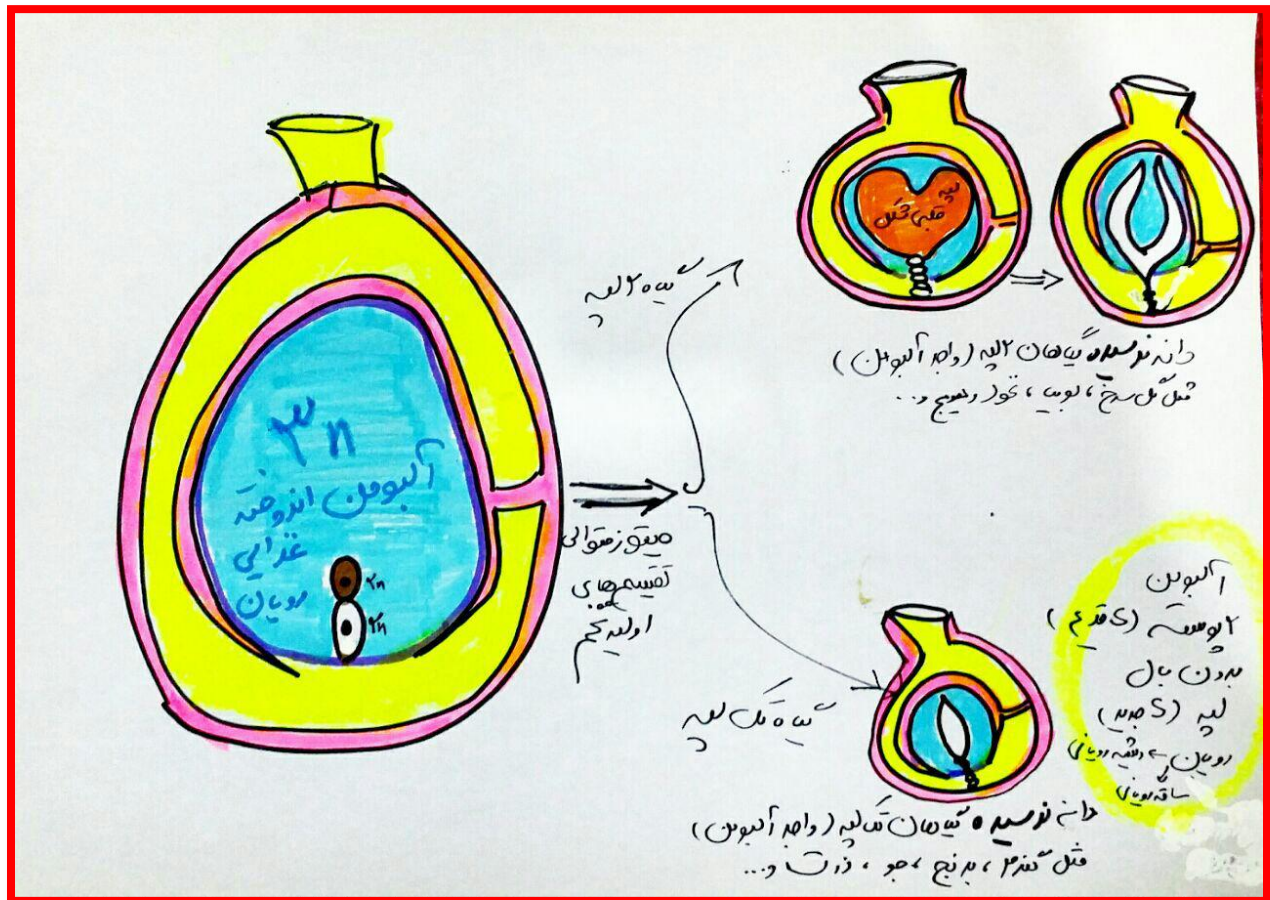 ۳n
آلبومن اندوخته
غذایی
رویان
۲n
۲n
میتوز متوالی
تقسیم‌های
اولیه تخم
گیاه ۲ لپه
لپه
قلبی شکل
دانه نورسیده گیاهان ۲ لپه (واجد آلبومن)
مثل گل سرخ، لوبیا، نخود و هویج و...
گیاه تک لپه
دانه نورسیده گیاهان تک لپه (واجد آلبومن)
مثل گندم، برنج، جو، ذرت و...
آلبومن
۲ پوسته (S قدیم)
بدون بال
لپه (S جدید)
رویان ← ریشه رویانی
ساقه رویانی